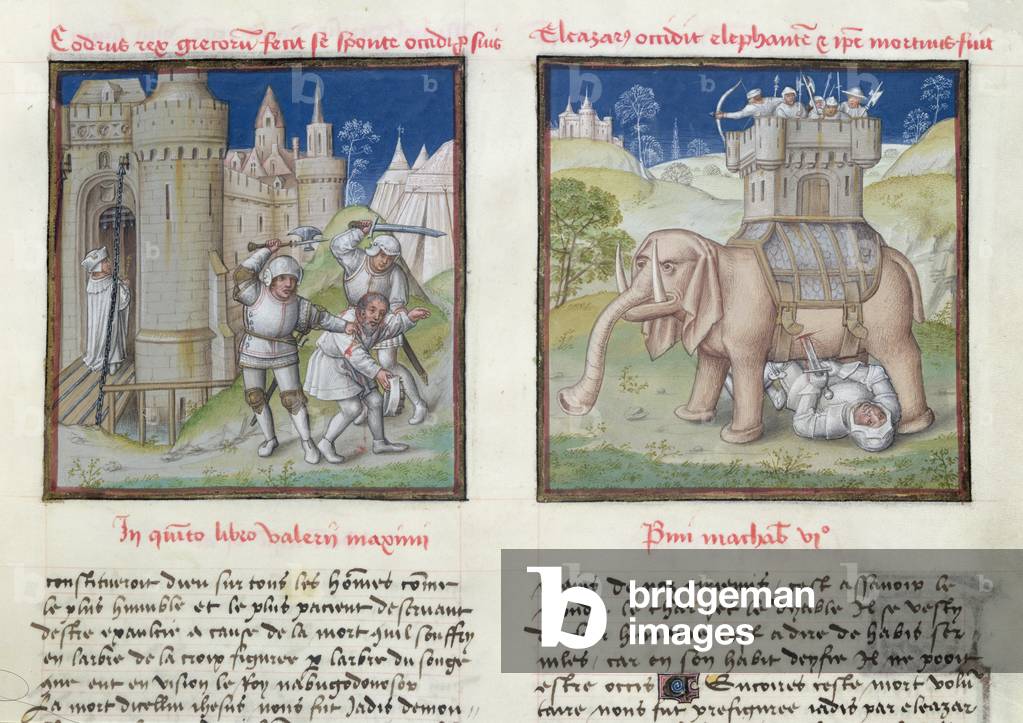 Codrus rex grecorū fecit se sponte occidi p suis
Eleazarꝰ occidit elephantē & ipē mortuus fuit
In qūto libro Valerij maximi
Pmi machab vi°
constitueroit dieu sur tous les hōmes cōme
le plus humble et le plus pacient deservant
destre epaulcie a cause de la mort quil souffry
en larbre de la croix figuree p larbre du songe
que eut en vision le Roy nabugodonosor
La mort dicellui ihesus nous fut Jadis demou
cest assavoir le
le dyable Il se vesty
adire de habis ser
car en son habit deyfie Il ne pooit
estre occis Encoires ceste mort volū
taire nous fut prefiguree iadis par eleazar
b bridgeman
images